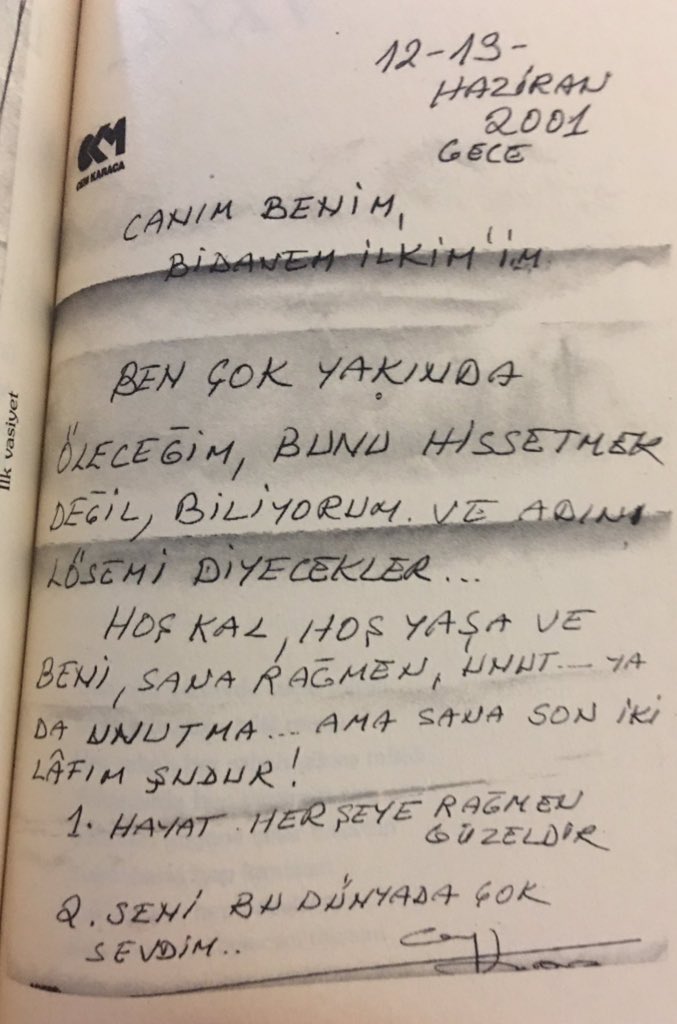 12-13-
HAZİRAN
2001
GECE
KM
CEM KARACA
CANIM BENİM,
BİDANEM İLKİM'İM
BEN ÇOK YAKINDA
ÖLECEĞİM, BUNU HİSSETMEK
DEĞİL, BİLİYORUM. VE ADINI
LÖSEMİ DİYECEKLER...
HOŞ KAL, HOŞ YAŞA VE
BENİ, SANA RAĞMEN, UNUT... YA
DA UNUTMA... AMA SANA SON İKİ
LÂFIM ŞUDUR!
1. HAYAT HERŞEYE RAĞMEN
GÜZELDİR
2. SENİ BU DÜNYADA ÇOK
SEVDİM..
İlk vasiyet